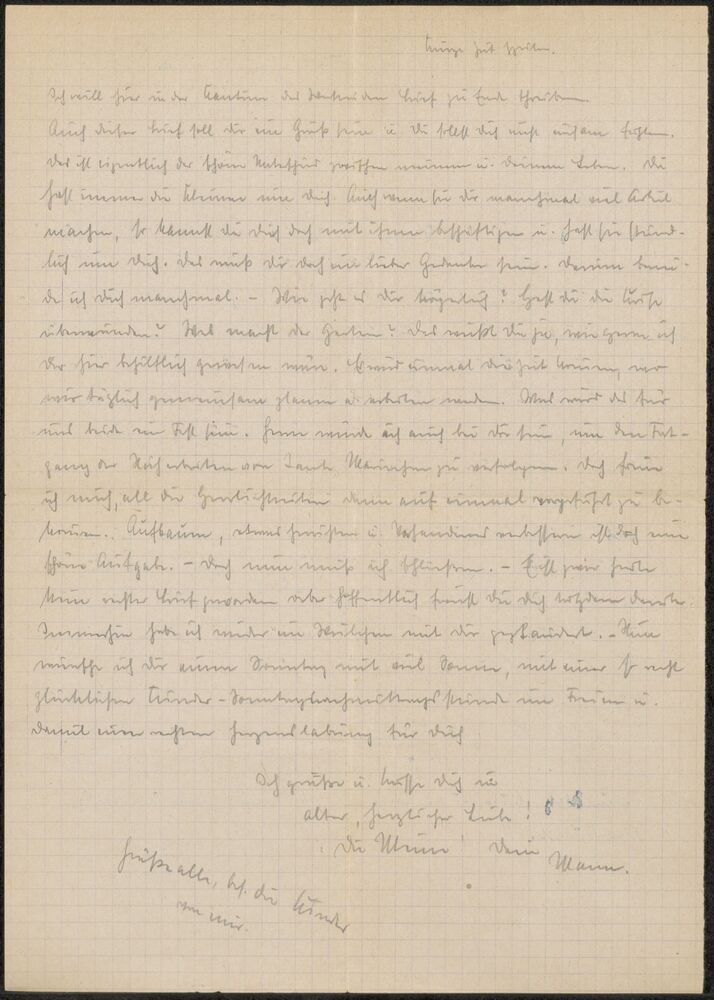 kurze Zeit später.
Ich will hier in der Kantine des den Brief zu Ende schreiben.
Auch dieser Brief soll dir ein Gruß sein u. Du sollst dich nicht einsam fühlen.
Das ist eigentlich der schöne zwischen meinem u. Deinem Leben. Du
hast immer die Kleinen um dich. Auch wenn sie dir manchmal viel Arbeit
machen, so kannst du dich doch mit ihnen beschäftigen u. hast sie stünd-
lich um dich. Das muß dir doch ein lieber Gedanke sein. Darum benei-
de ich dich manchmal. - Wie geht es dir körperlich? Hast du die Krise
überwunden? Was macht der Garten? Das weißt Du ja, wie gerne ich
dir hier behilflich gewesen wäre. Es wird einmal die Zeit kommen, wo
wir täglich gemeinsam planen u. arbeiten werden. Das wird das für
uns beide ein Fest sein. Gerne würde ich auch bei dir sein, um den Fort-
gang der Näharbeiten von Tante Mariechen zu verfolgen. Doch freue
ich mich, all die Herrlichkeiten dann auf einmal vorgeführt zu be-
kommen. Aufbauen, etwas schaffen u. Vorhandenes verbessern ist doch eine
schöne Aufgabe. - Doch nun muß ich schließen. - Es ist zwar heute
kein rechter Brief geworden aber hoffentlich freust Du dich trotzdem darüber.
Immerhin habe ich wieder ein Weilchen mit dir geplaudert. - Nun
wünsche ich dir einen Sonntag mit viel Sonne, mit einer so recht
glücklichen Kinder-Sonntagnachmittagsstunde im Freien u.
damit einen rechten Herzenslabung für dich
Ich grüße u. küsse dich in
alter, herzlicher Liebe!
Du Meine! Dein Mann.
Grüße alle, bes. die Kinder
von mir.